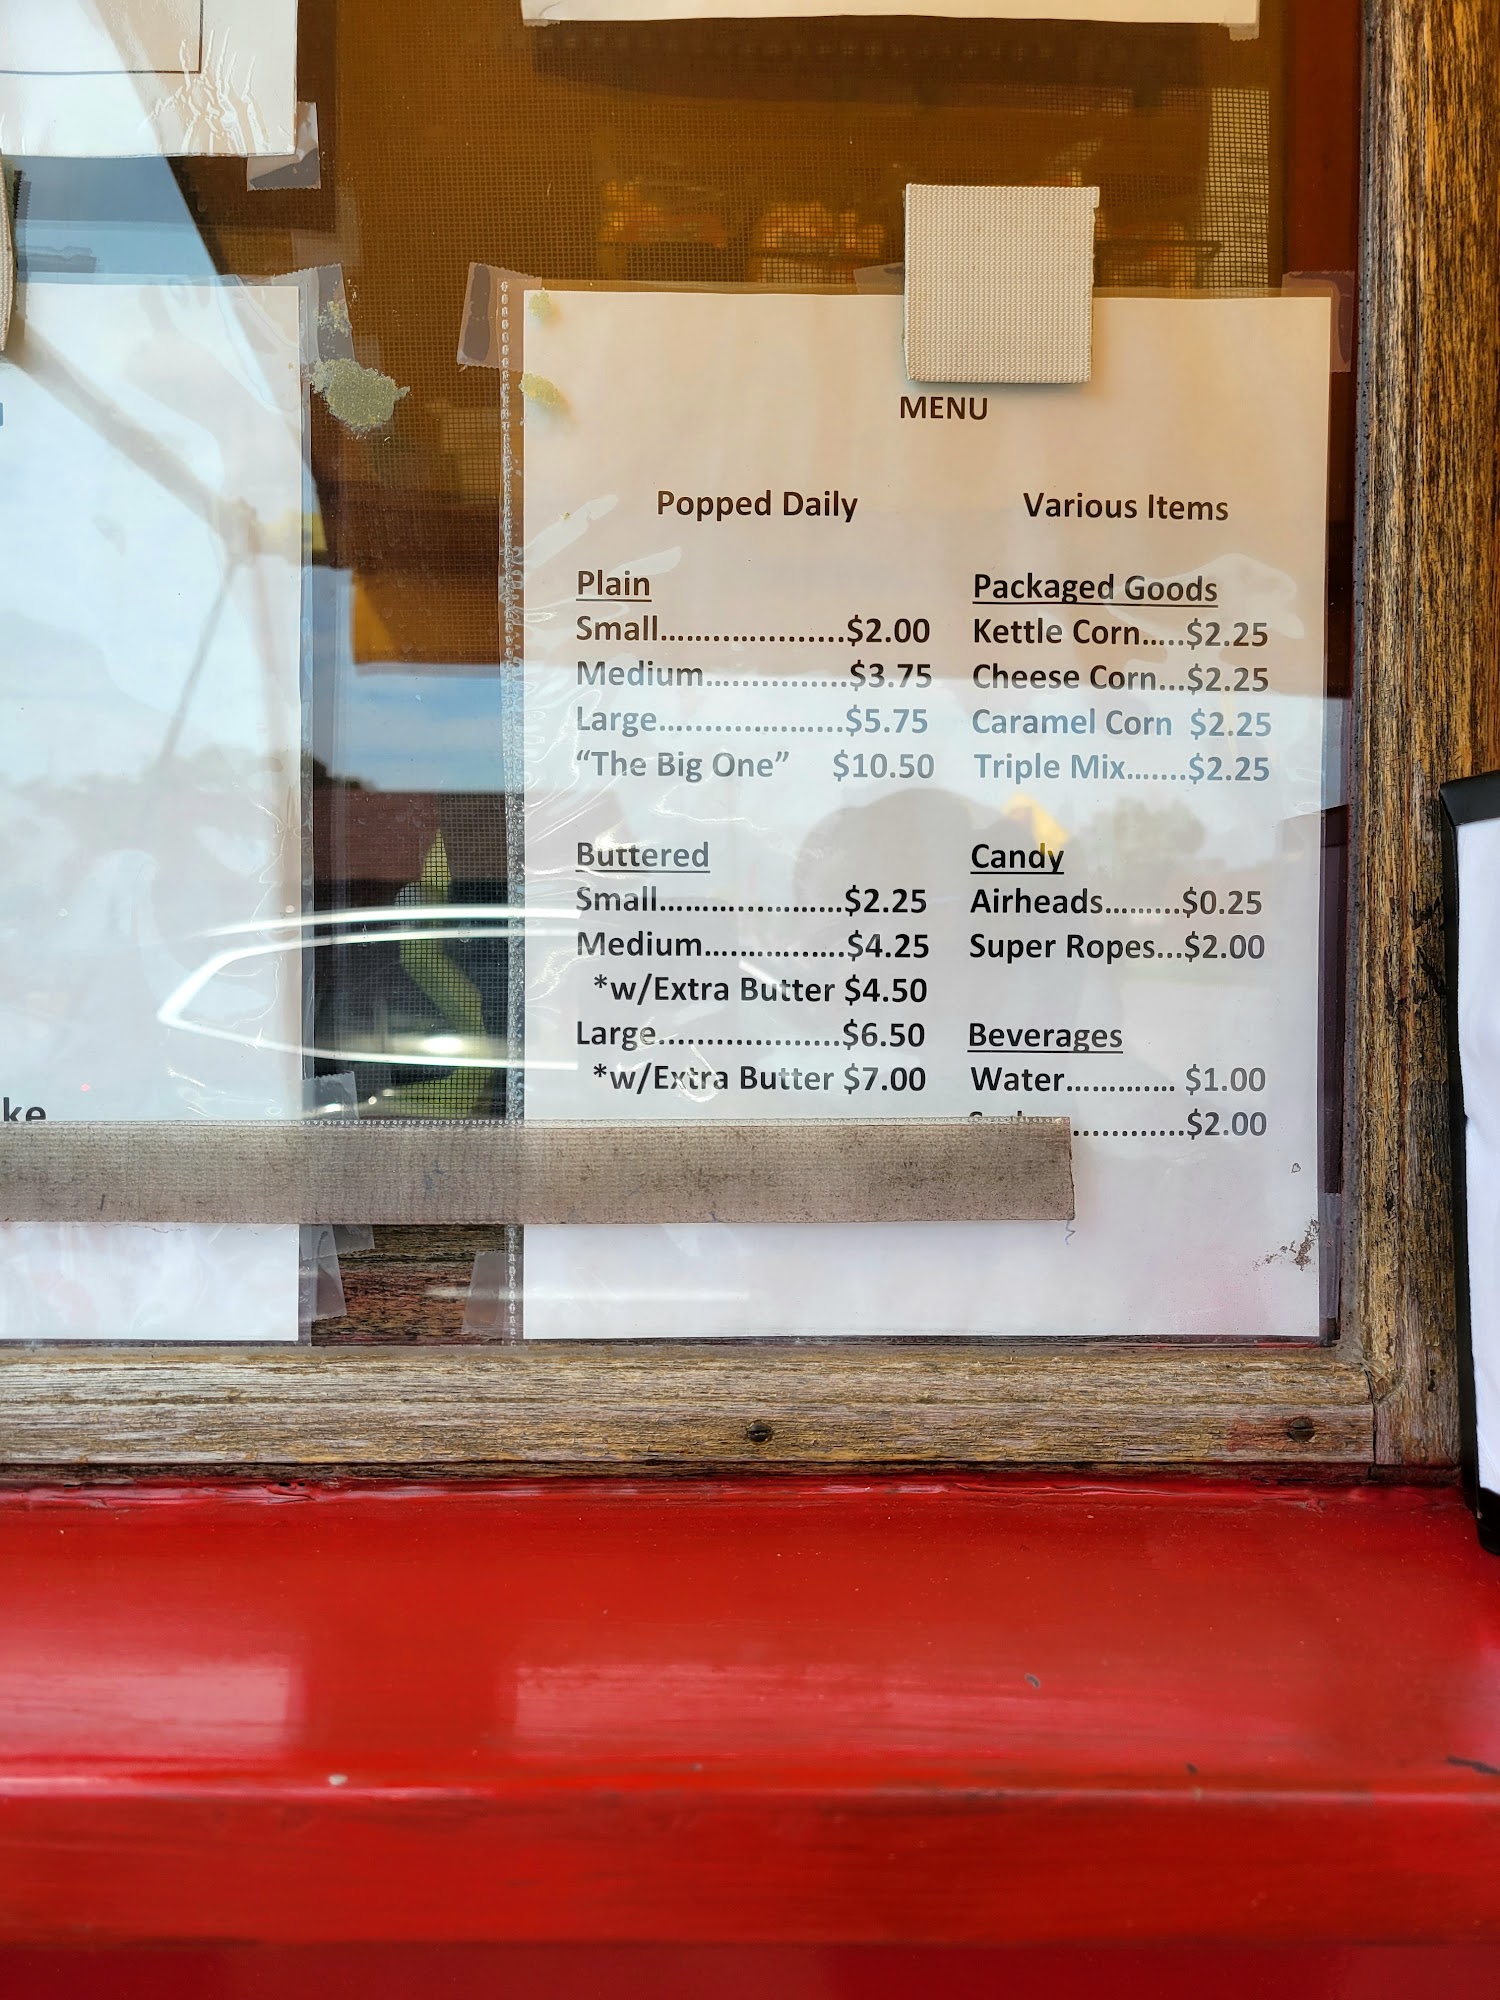 MENU
Popped Daily
Plain
Small......................$2.00
Medium................$3.75
Large.....................$5.75
“The Big One” $10.50
Buttered
Small.....................$2.25
Medium................$4.25
*w/Extra Butter $4.50
Large.....................$6.50
*w/Extra Butter $7.00
Various Items
Packaged Goods
Kettle Corn.....$2.25
Cheese Corn...$2.25
Caramel Corn $2.25
Triple Mix.......$2.25
Candy
Airheads.........$0.25
Super Ropes...$2.00
Beverages
Water............. $1.00
.............$2.00
ke